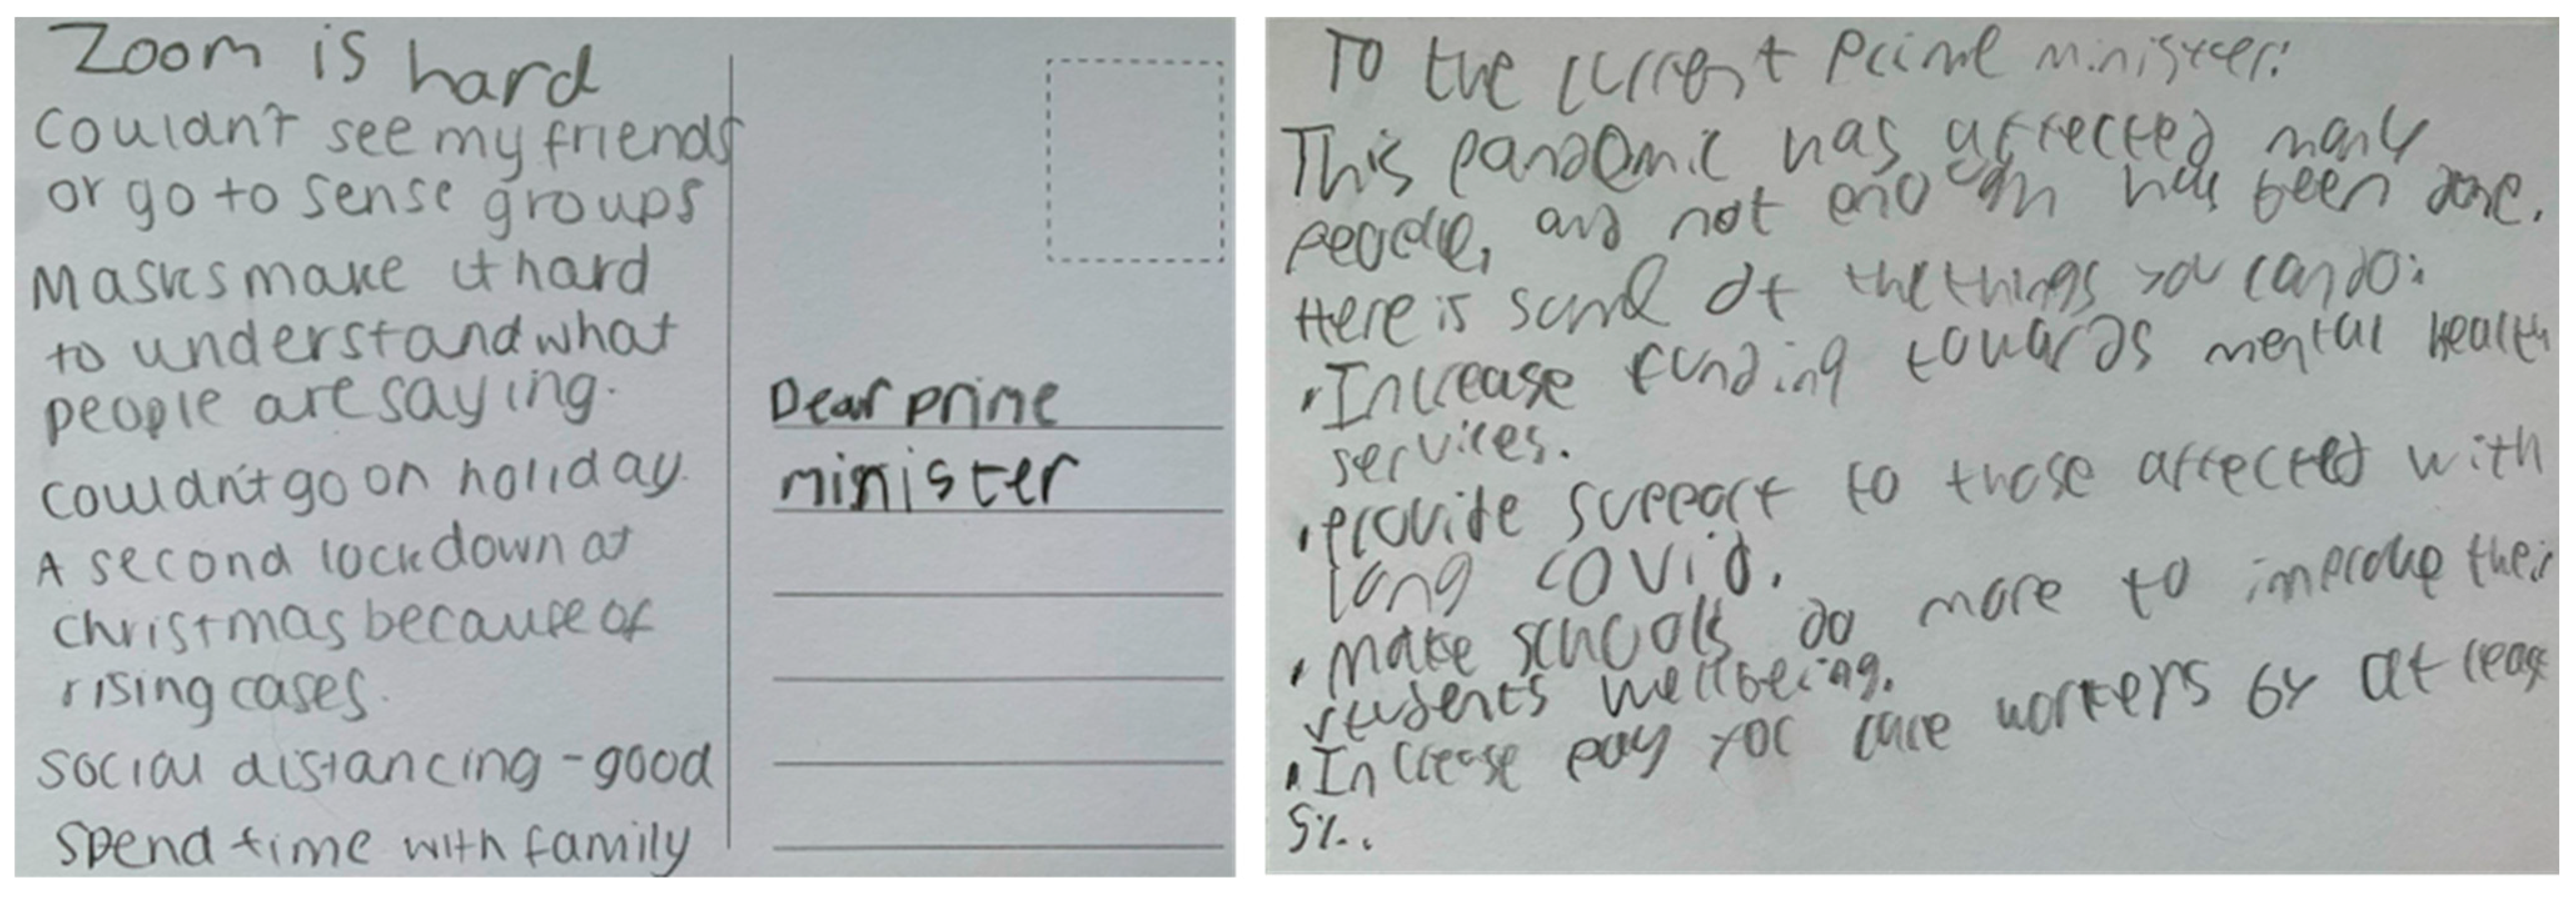 Zoom is hard
Couldn't see my friends
or go to sense groups
Masks make it hard
to understand what
people are saying.
Couldn't go on holiday.
A second lockdown at
christmas because of
rising cases.
social distancing - good
spend time with family
Dear prime
minister
To the current prime minister:
This pandemic has affected many
people, and not enough has been done.
Here is some of the things you can do:
• Increase funding towards mental health
services.
• provide support to those affected with
long covid.
• Make schools do more to improve their
students wellbeing.
• Increase pay for care workers by at least
5%..